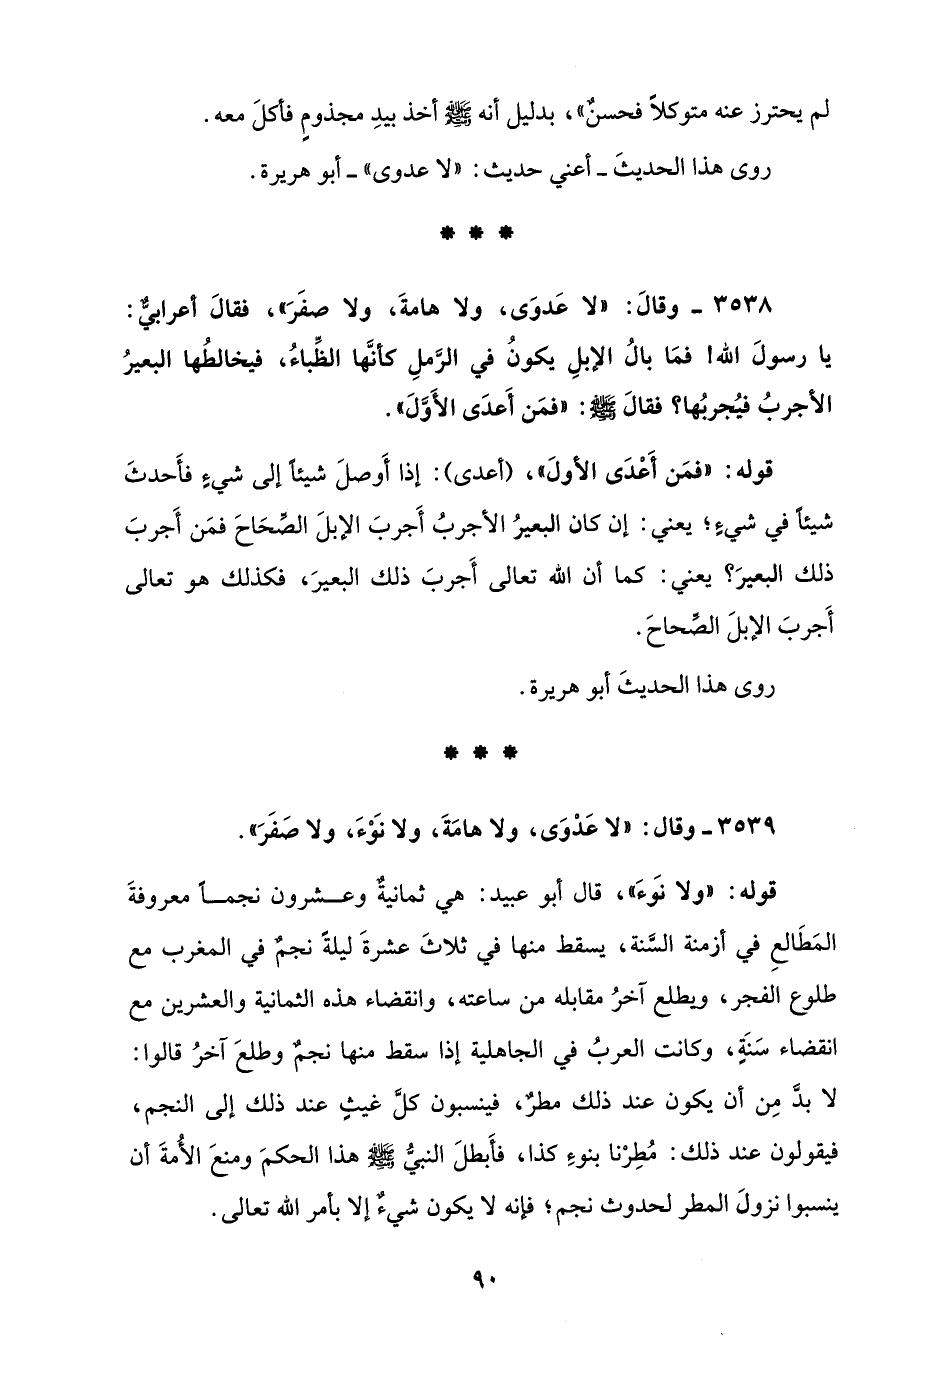 لم يحترز عنه متوكلاً فحسنٌ»، بدليل أنه ﷺ أخذ بيدِ مجذومٍ فأكلَ معه.
روى هذا الحديثَ ـ أعني حديث: «لا عدوى» ـ أبو هريرة.
* * *
٣٥٣٨ ـ وقالَ: «لا عَدوَى، ولا هامةَ، ولا صفَرَ»، فقالَ أعرابيٌّ:
يا رسولَ الله! فمَا بالُ الإبلِ يكونُ في الرَّملِ كأنَّها الظِّباءُ، فيخالطُها البعيرُ
الأجربُ فيُجربُها؟ فقالَ ﷺ: «فمَن أَعدَى الأَوَّلَ».
قوله: «فمَن أَعْدَى الأولَ»، (أعدى): إذا أَوصلَ شيئاً إلى شيءٍ فأَحدثَ
شيئاً في شيءٍ؛ يعني: إن كان البعيرُ الأجربُ أَجربَ الإبلَ الصِّحَاحَ فمَن أَجربَ
ذلك البعيرَ؟ يعني: كما أن الله تعالى أَجربَ ذلك البعيرَ، فكذلك هو تعالى
أَجربَ الإبلَ الصِّحاحَ.
روى هذا الحديثَ أبو هريرة.
* * *
٣٥٣٩ ـ وقال: «لا عَدْوَى، ولا هامَةَ، ولا نَوْءَ، ولا صَفَرَ».
قوله: «ولا نَوءَ»، قال أبو عبيد: هي ثمانيةٌ وعـشرون نجمـاً معروفةَ
المَطَالعِ في أزمنة السَّنة، يسقط منها في ثلاثَ عشرةَ ليلةً نجمٌ في المغرب مع
طلوع الفجر، ويطلع آخرُ مقابله من ساعته، وانقضاء هذه الثمانية والعشرين مع
انقضاء سَنَةٍ، وكانت العربُ في الجاهلية إذا سقط منها نجمٌ وطلعَ آخرُ قالوا:
لا بدَّ مِن أن يكون عند ذلك مطرٌ، فينسبون كلَّ غيثٍ عند ذلك إلى النجم،
فيقولون عند ذلك: مُطِرْنا بنوءِ كذا، فأَبطلَ النبيُّ ﷺ هذا الحكمَ ومنعَ الأُمةَ أن
ينسبوا نزولَ المطر لحدوث نجم؛ فإنه لا يكون شيءٌ إلا بأمر الله تعالى.
٩٠